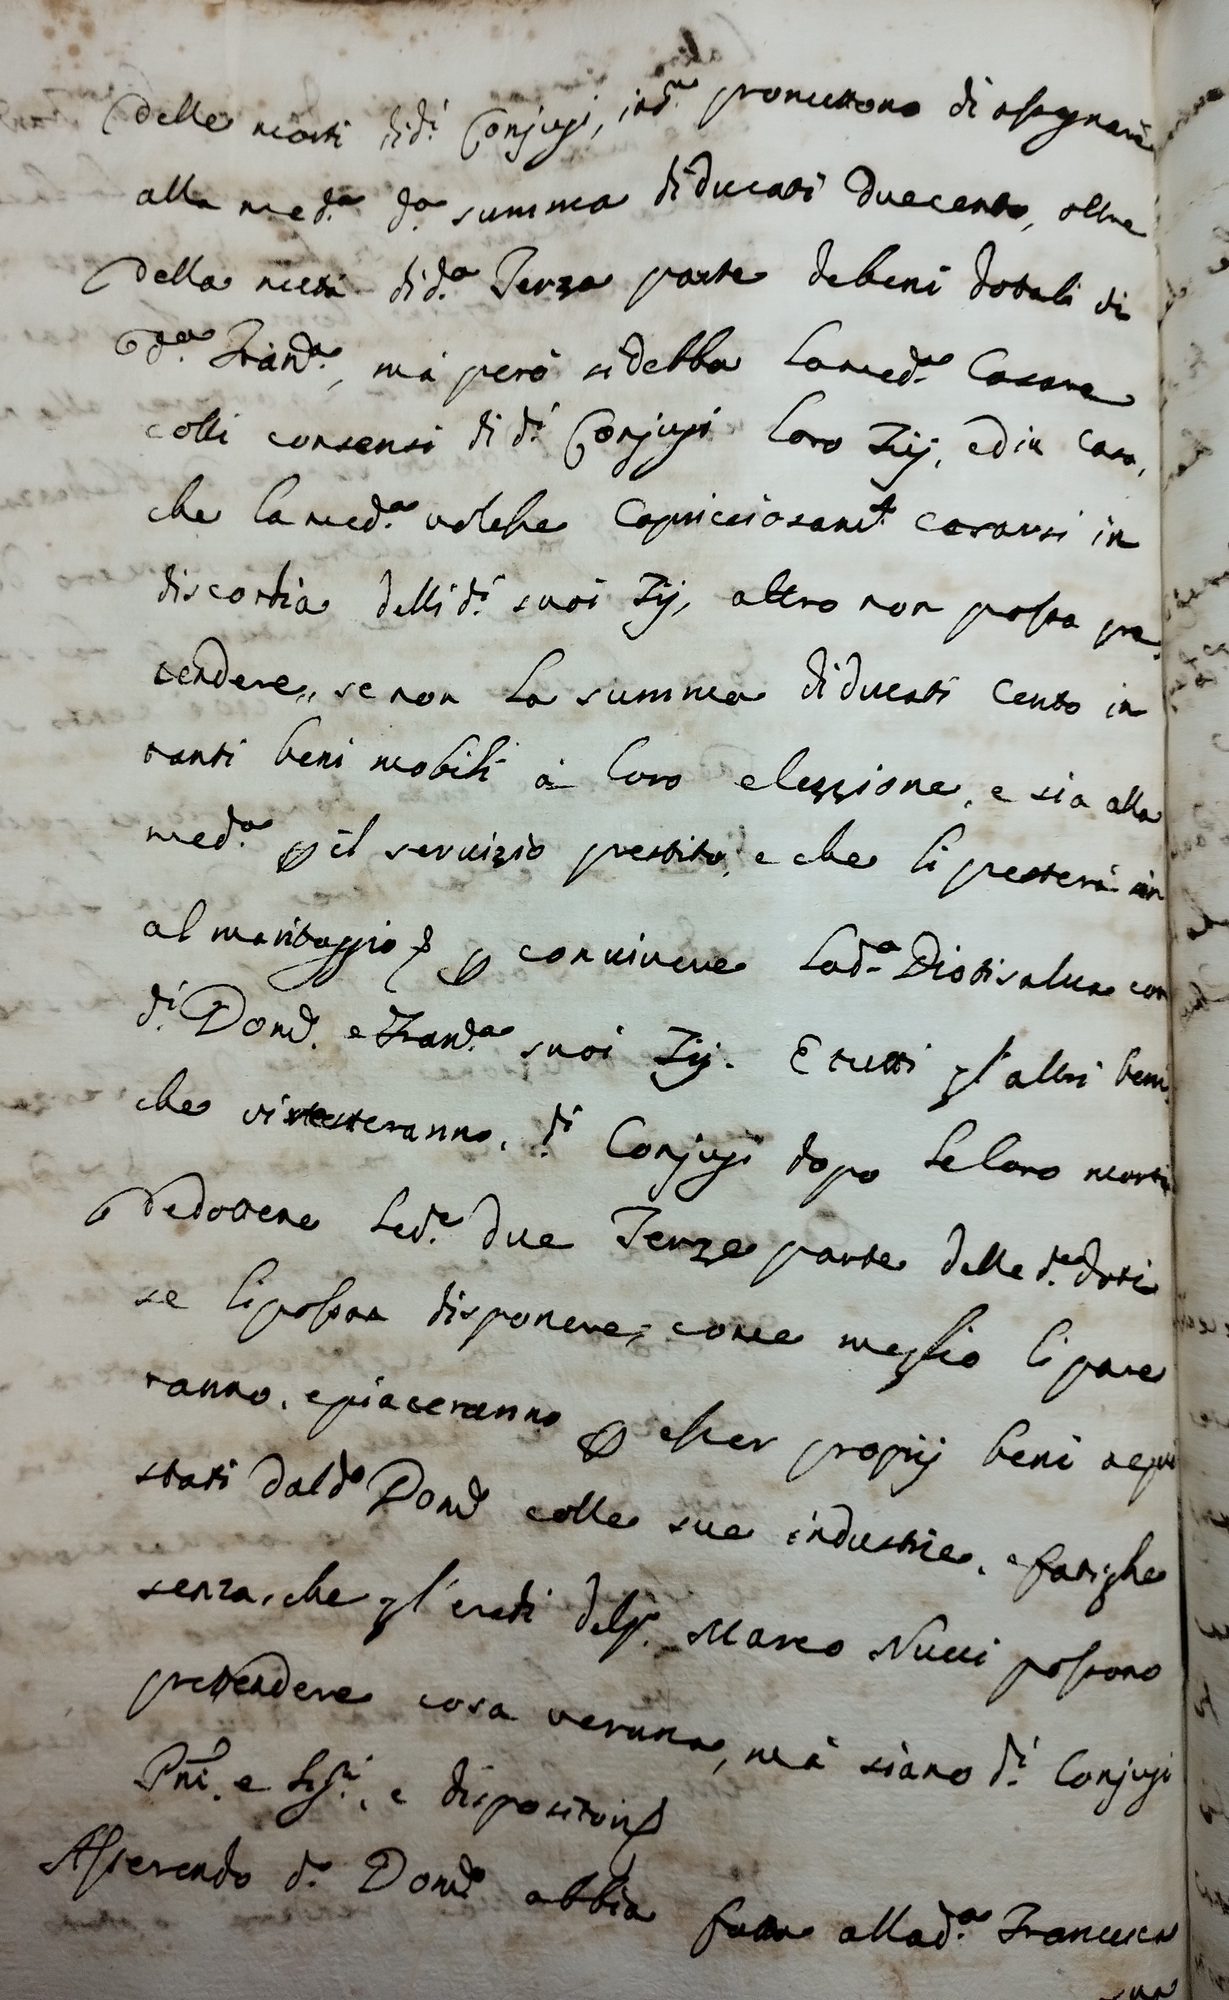 Delle morti di d.i Conjugi, ind.m promettono di assegnare
alla med.a d.a summa di ducati duecento, oltre
della metà di d.a Terza parte debeni dotali di
d.a Fran.a, mà però si debba la med.a Casare
colli consensi di d.i Conjugi loro Zij, ed in caso,
che la med.a volesse Capricciosam.te casarsi in
discordia delli d.i suoi Zij, altro non possa pre
tendere, se non la summa di ducati Cento in
tanti beni mobili à loro elezzione, e sia alla
med.a p il servizio prestito, e che li presterà sin
al maritaggio p convivere la d.a Diotisalva con
d.i Dom.co e Fran.a suoi Zij. E tutti gl'altri beni,
che vi resteranno, d.i Conjugi dopo le loro morti
dedottene le d.e due Terze parte delle d.e doti
se li possa disponere, come meglio li pare
ranno, e piaceranno p esser proprij beni acqui
stati dal d.o Dom.co colle sue industrie, e fatighe
senza, che gl'eredi del q.m Marco Nucci possono
pretendere cosa veruna, mà siano d.i Conjugi
Pñi, e Sig.ri, e dispositori
Asserendo d.o Dom.co abbia fatta alla d.a Francesca
sua